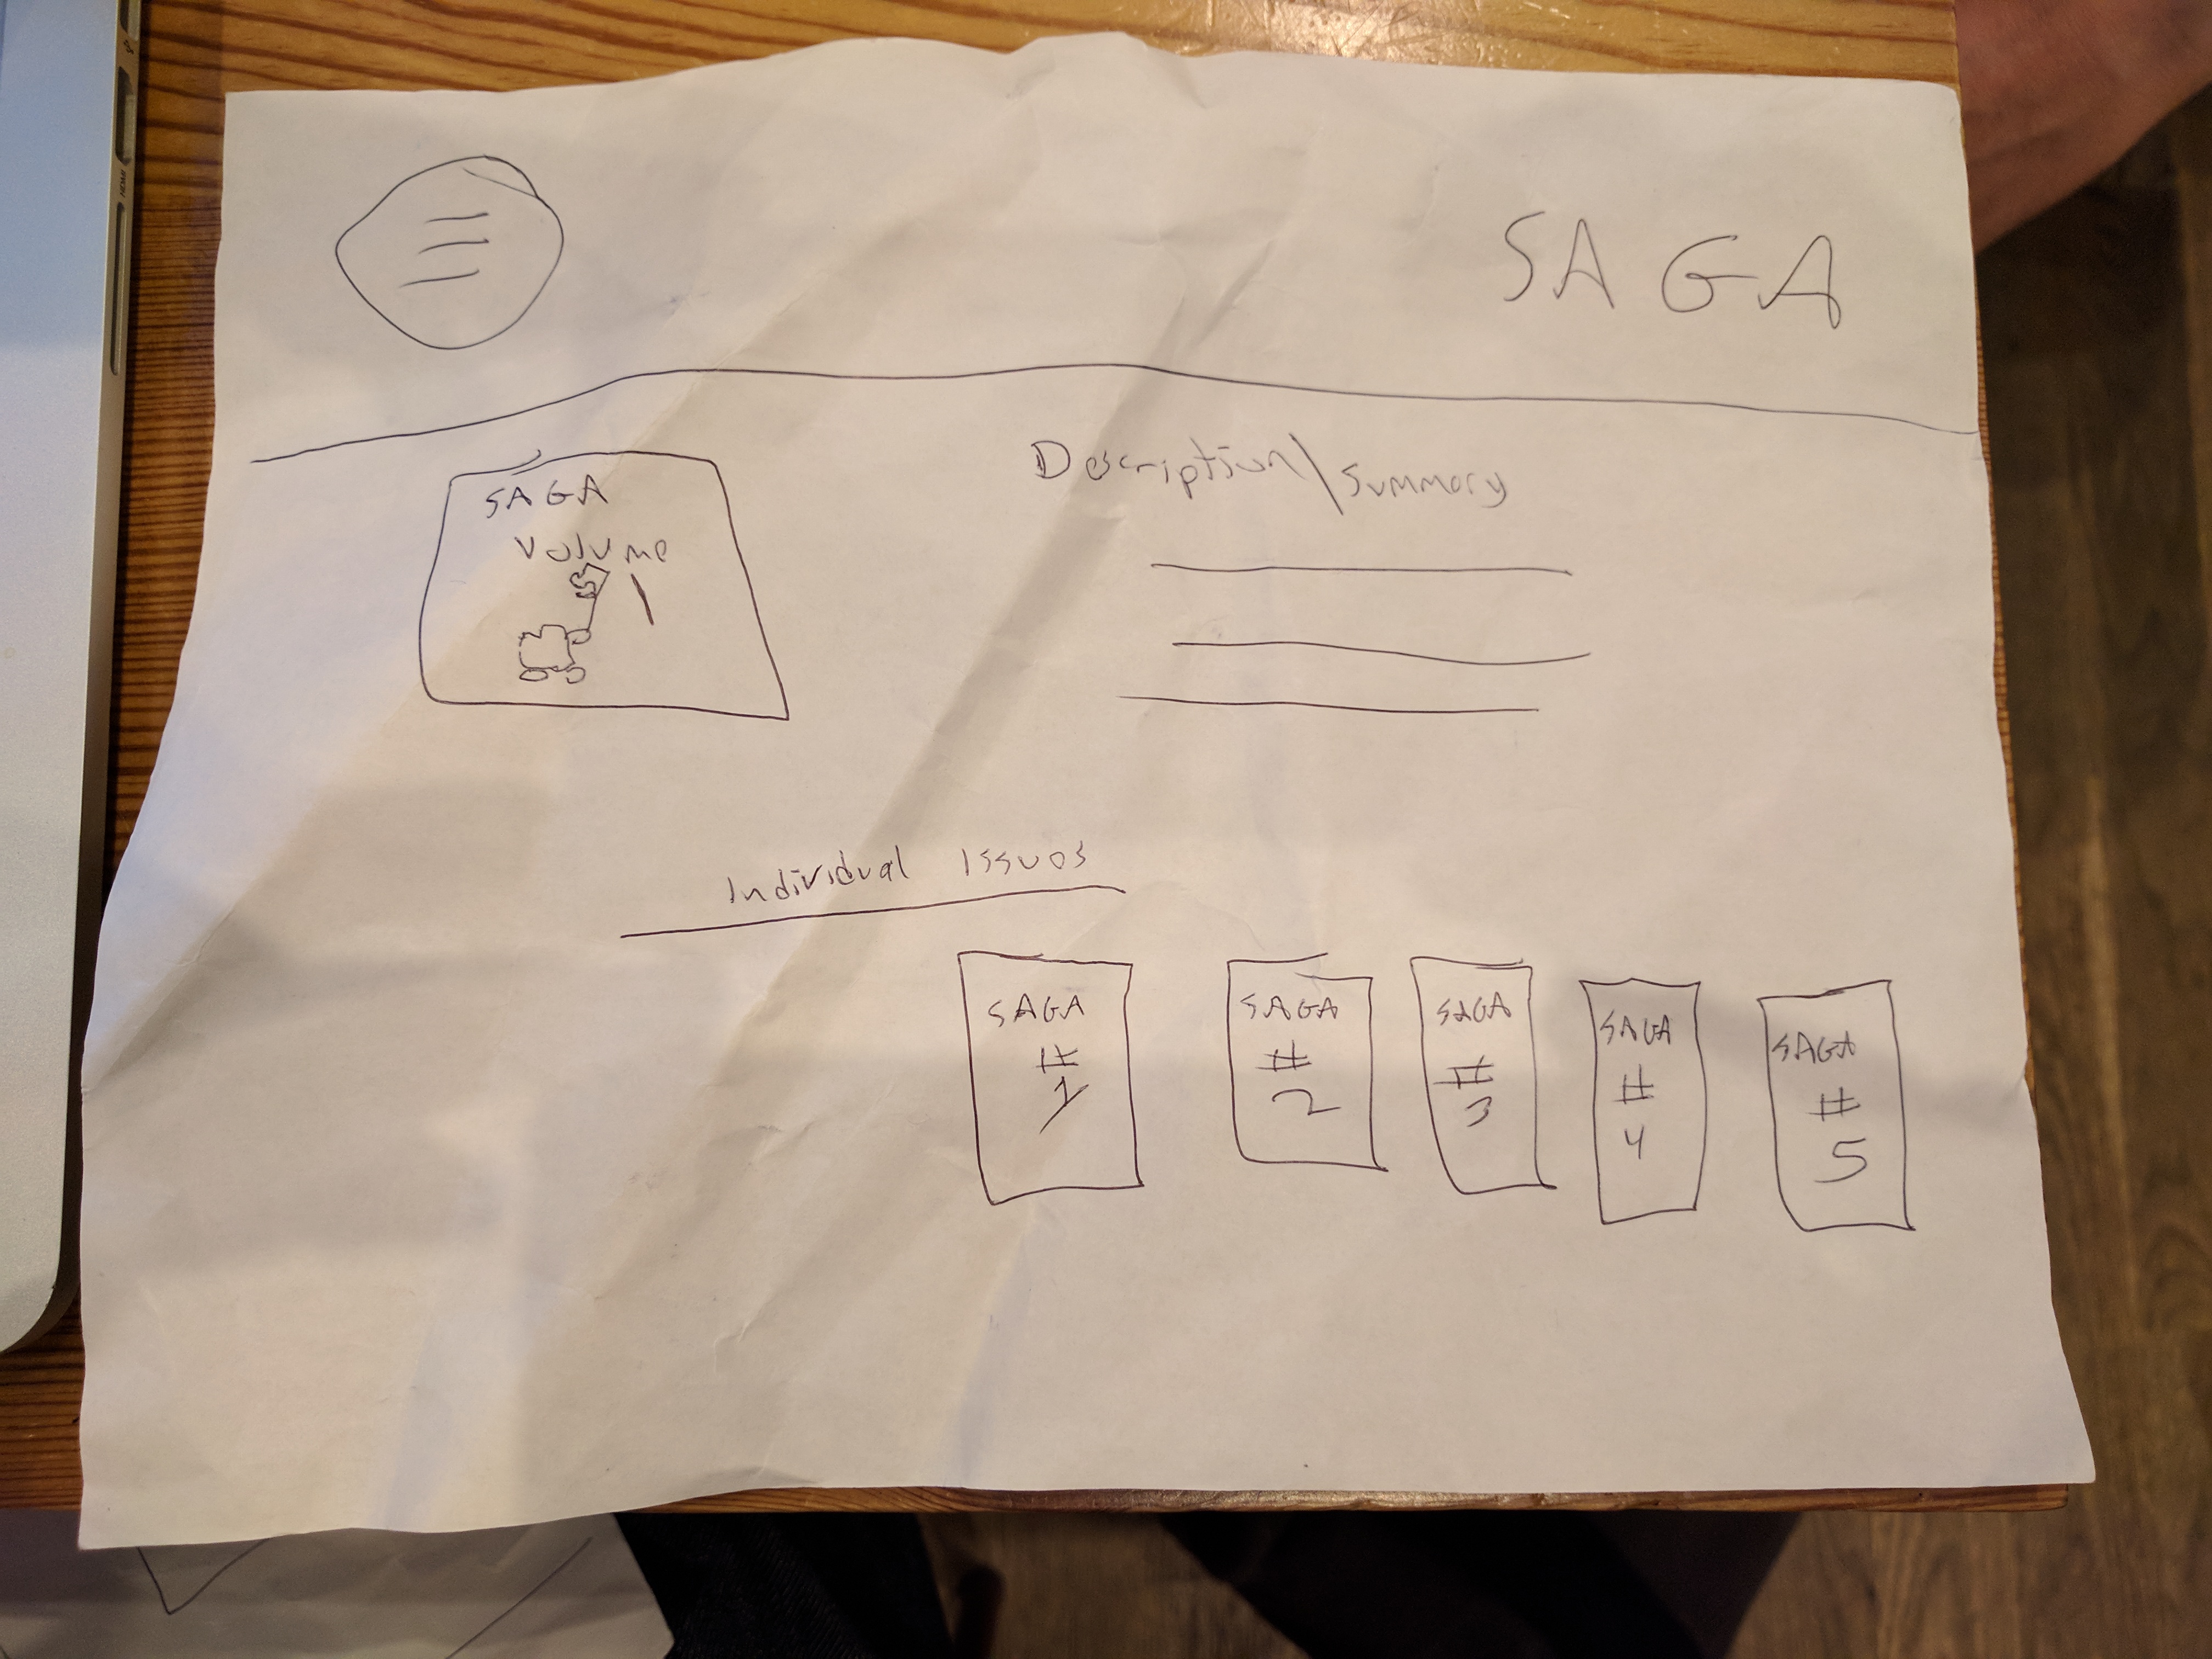 SAGA
SAGA
Volume
1
Description\Summary
Individual Issues
SAGA
#
1
SAGA
#
2
SAGA
#
3
SAGA
#
4
SAGA
#
5
HDMI